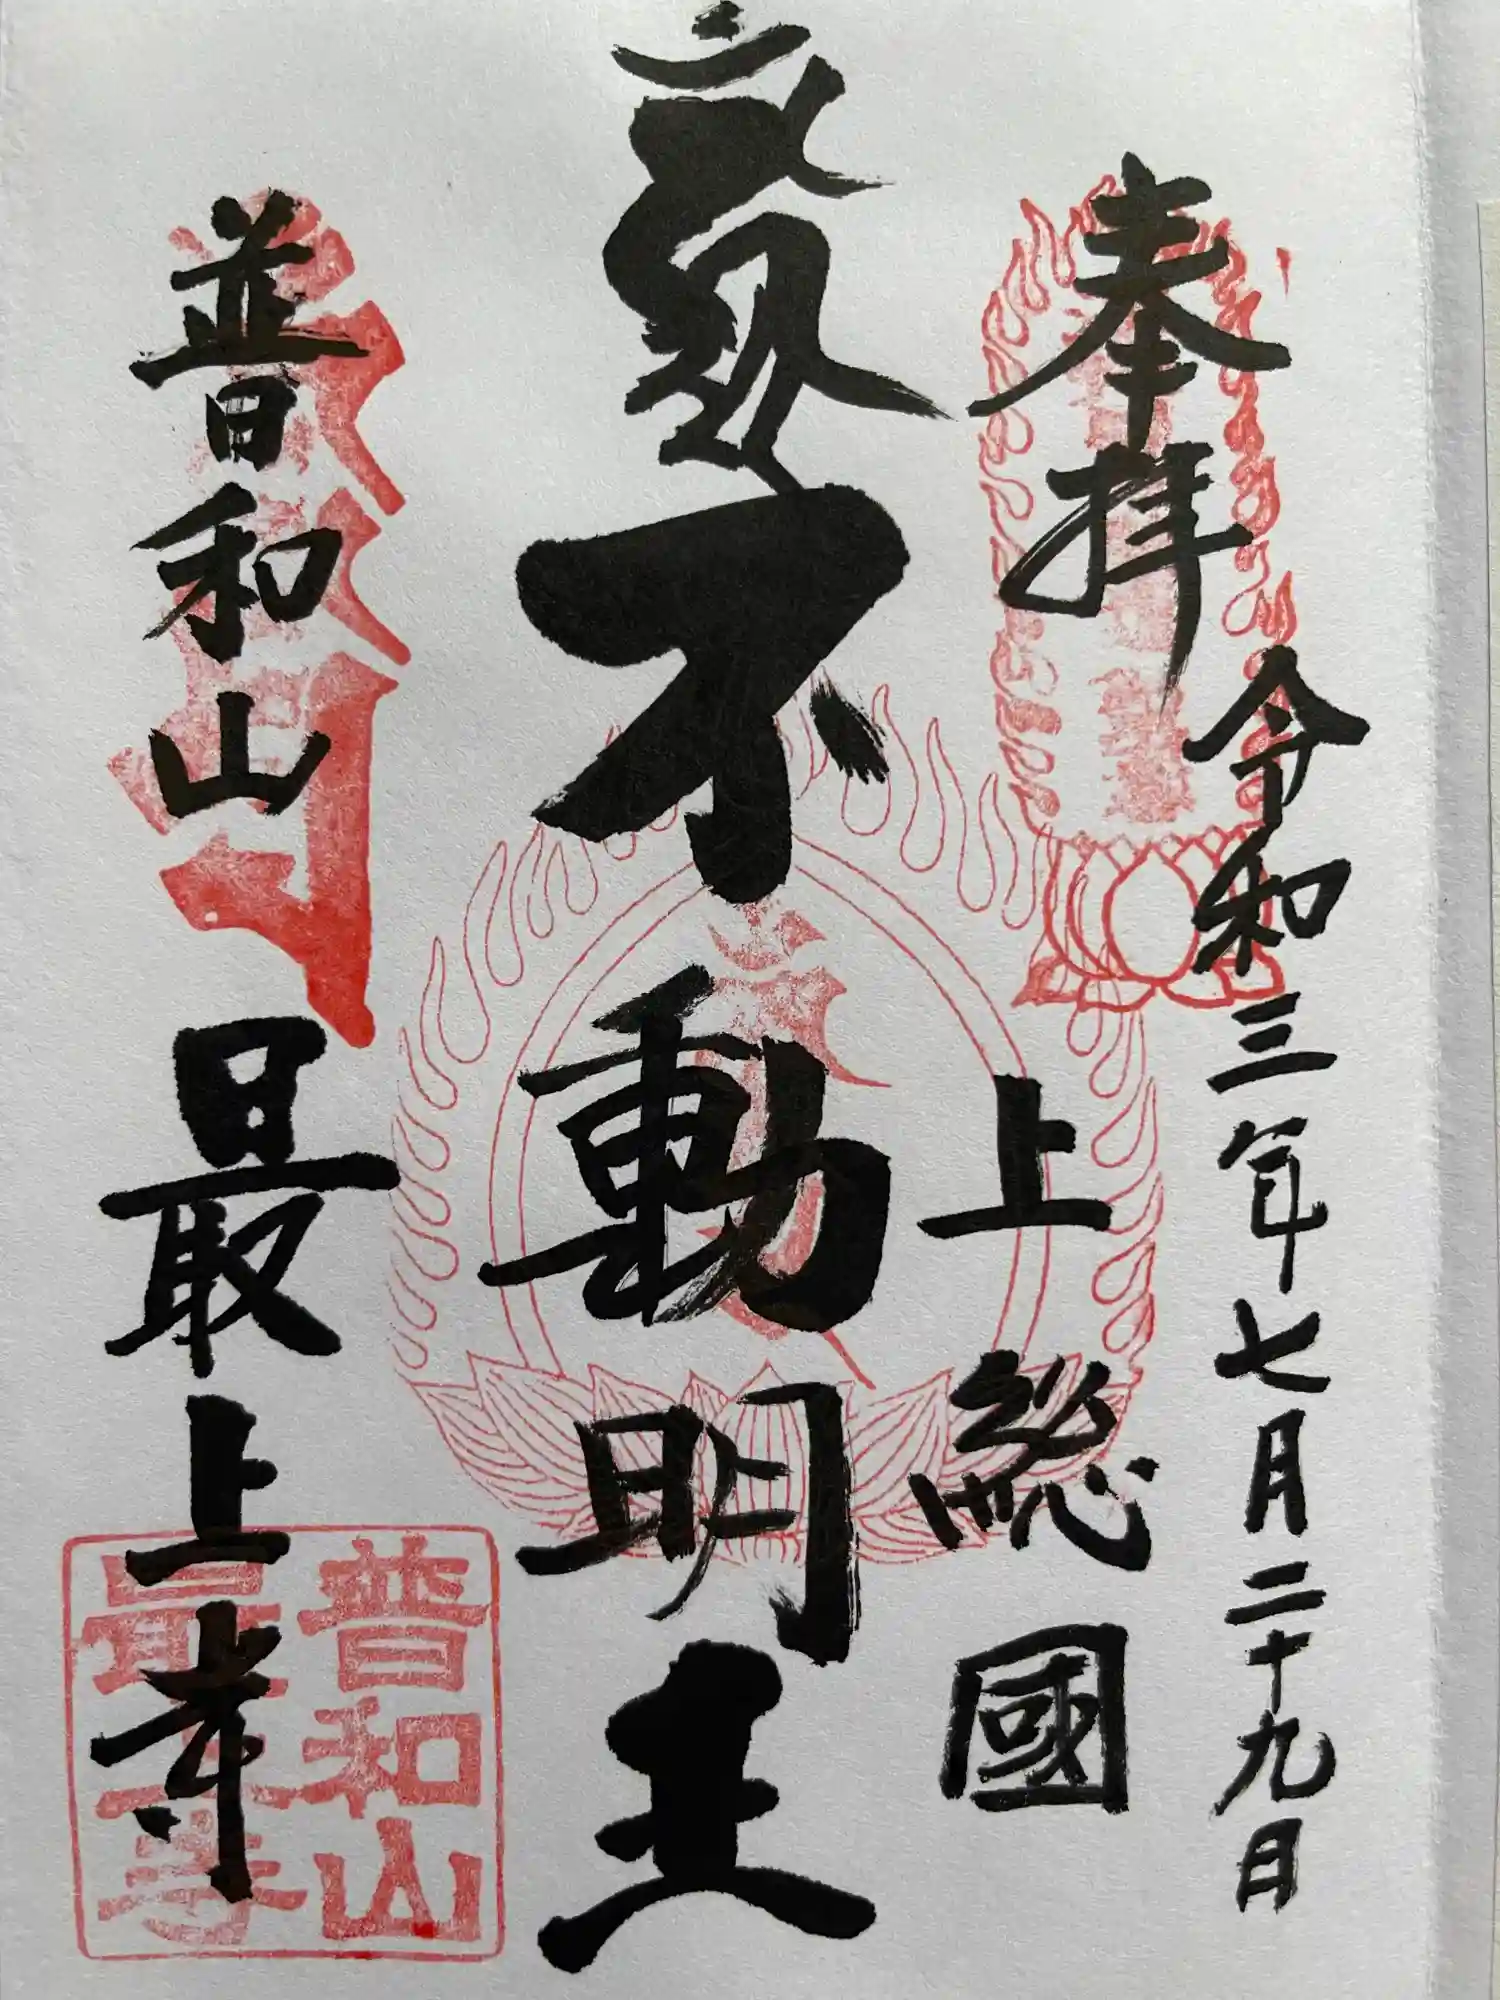 奉拝
令和三年七月二十九日
上総國
不動明王
普和山
最上寺
普和山
最上寺